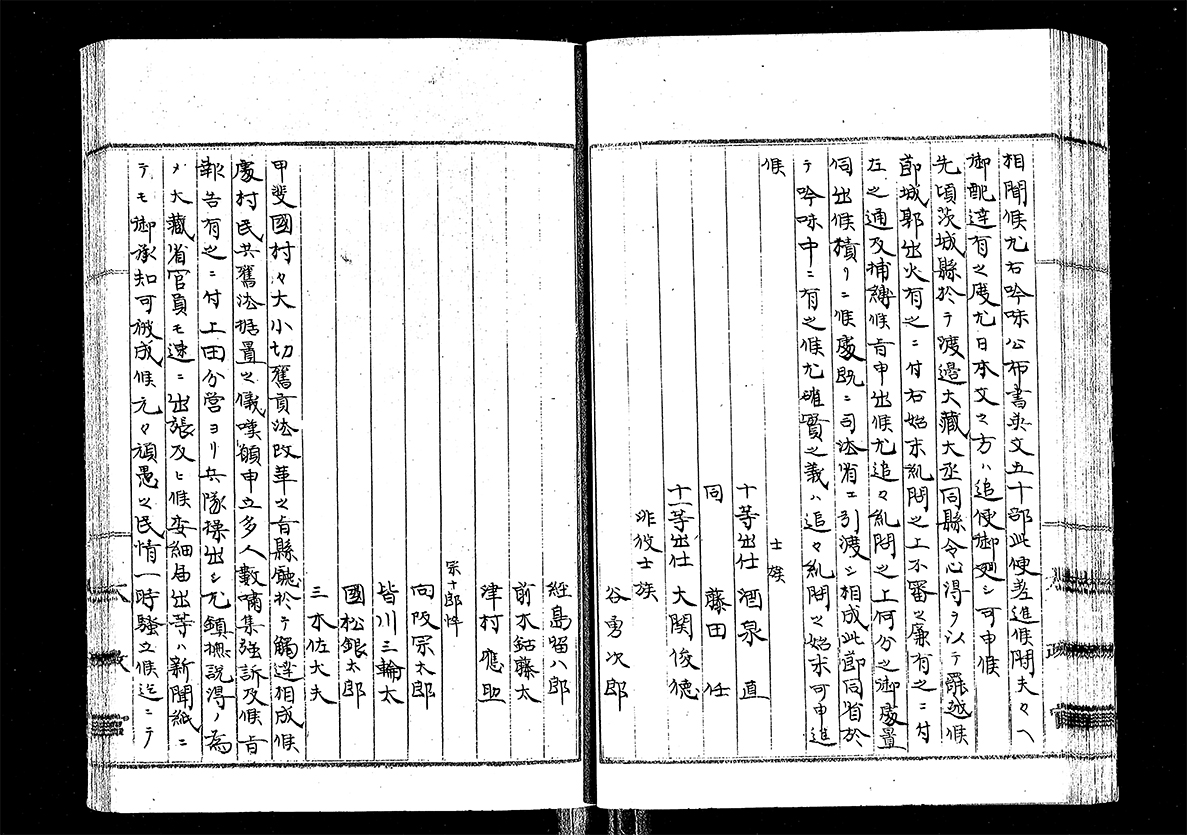 相聞候尤右吟味公布書英文五十部此便差進候間夫々ヘ
御配達有之度尤日本文之方ハ追便御廻シ可申候
先頃茨城縣於テ渡邉大藏大丞同縣令心得ヲ以テ罷越候
節城郭出火有之ニ付右始末糺問之上不審之廉有之ニ付
左之通及捕縛候旨申出候尤追々糺問之上何分之御處置
伺出候積リニ候處既ニ司法省エ引渡シ相成此節同省於
テ吟味中ニ有之候尤確實之義ハ追々糺問之始末可申進
候
士族
十等出仕 酒泉 直
同 藤田 任
十一等出仕 大関俊徳
非役士族
谷勇次郎
經島留八郎
前木鈷藤太
津村應助
宗十郎悴
向阪宗太郎
皆川三輪太
國松銀太郎
三木佐大夫
甲斐國村々大小切舊貢法改革之旨縣廳於テ觸達相成候
處村民共舊法据置之儀嘆願申立多人數嘯集強訴及候旨
報告有之ニ付上田分營ヨリ兵隊操出シ尤鎮撫説得ノ為
メ大藏省官員モ速ニ出張及ヒ候委細届出等ハ新聞紙ニ
テモ御承知可被成候元々頑愚之民情一時騒立候迄ニテ